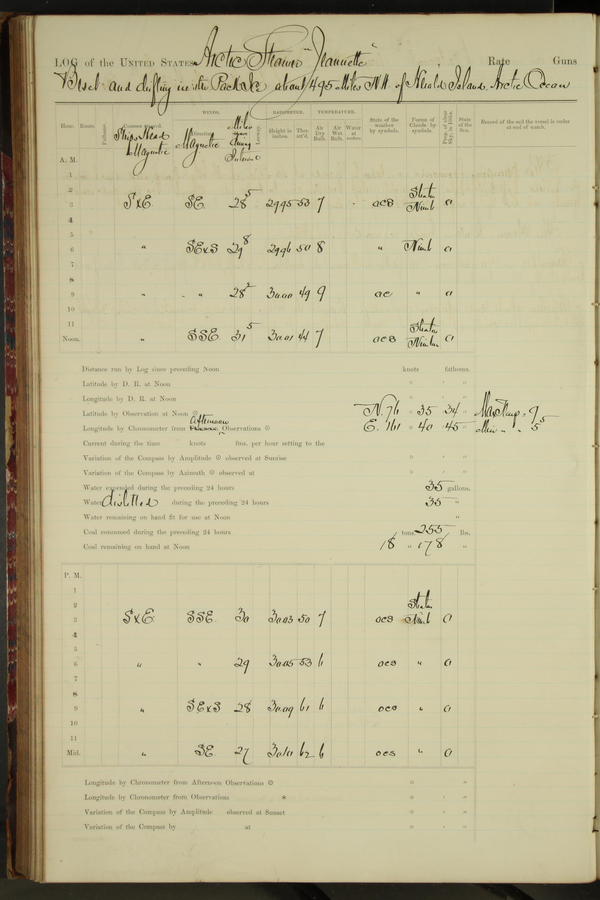 LOG of the UNITED STATES Arctic Steamer "Jeannette" Rate Guns
Beset and drifting in the Pack Ice about 495 Miles NW of Herald Island, Arctic Ocean
WINDS. BAROMETER. TEMPERATURE.
Hour. Knots. Fathoms. Courses steered. Ships Head Magnetic Direction Magnetic Leeway. Height in inches. Ther. att'd. Air Dry Bulb. Air Wet Bulb. Water at surface. State of the weather by symbols. Forms of Clouds by symbols. State of the Sea. Record of the sail the vessel is under at end of watch.
A. M.
1
2
3 S x E SE 28 5 2995 53 7 ocs Strat Nimb 0
4
5
6 " SExS 29 8 2996 50 8 " Nimb 0
7
8
9 " " 28 2 3000 49 9 oc " 0
10
11
Noon. " SSE 31 5 3001 44 7 ocs Stratus Nimbus 0
Distance run by Log since preceding Noon knots fathoms.
Latitude by D. R. at Noon ° ' "
Longitude by D. R. at Noon ° ' "
Latitude by Observation at Noon N. 76 ° 35 ' 34 " Max Temp. 9
Longitude by Chronometer from afternoon Observations E. 161 ° 40 ' 45 " Min " " 5 5
Current during the time knots fms. per hour setting to the
Variation of the Compass by Amplitude observed at Sunrise ° ' "
Variation of the Compass by Azimuth observed at ° ' "
Water expended during the preceding 24 hours 35 gallons.
Water distilled during the preceding 24 hours 35 "
Water remaining on hand fit for use at Noon "
Coal consumed during the preceding 24 hours tons 255 lbs.
Coal remaining on hand at Noon 18 " 178 "
P. M.
1
2
3 S x E SSE 30 3003 50 7 ocs Stratus Nimb 0
4
5
6 " " 29 3005 53 6 ocs " 0
7
8
9 " SExS 28 3009 61 6 ocs " 0
10
11
Mid. " SE 27 3010 62 6 ocs " 0
Longitude by Chronometer from Afternoon Observations ° ' "
Longitude by Chronometer from Observations * ° ' "
Variation of the Compass by Amplitude observed at Sunset ° ' "
Variation of the Compass by at ° ' "